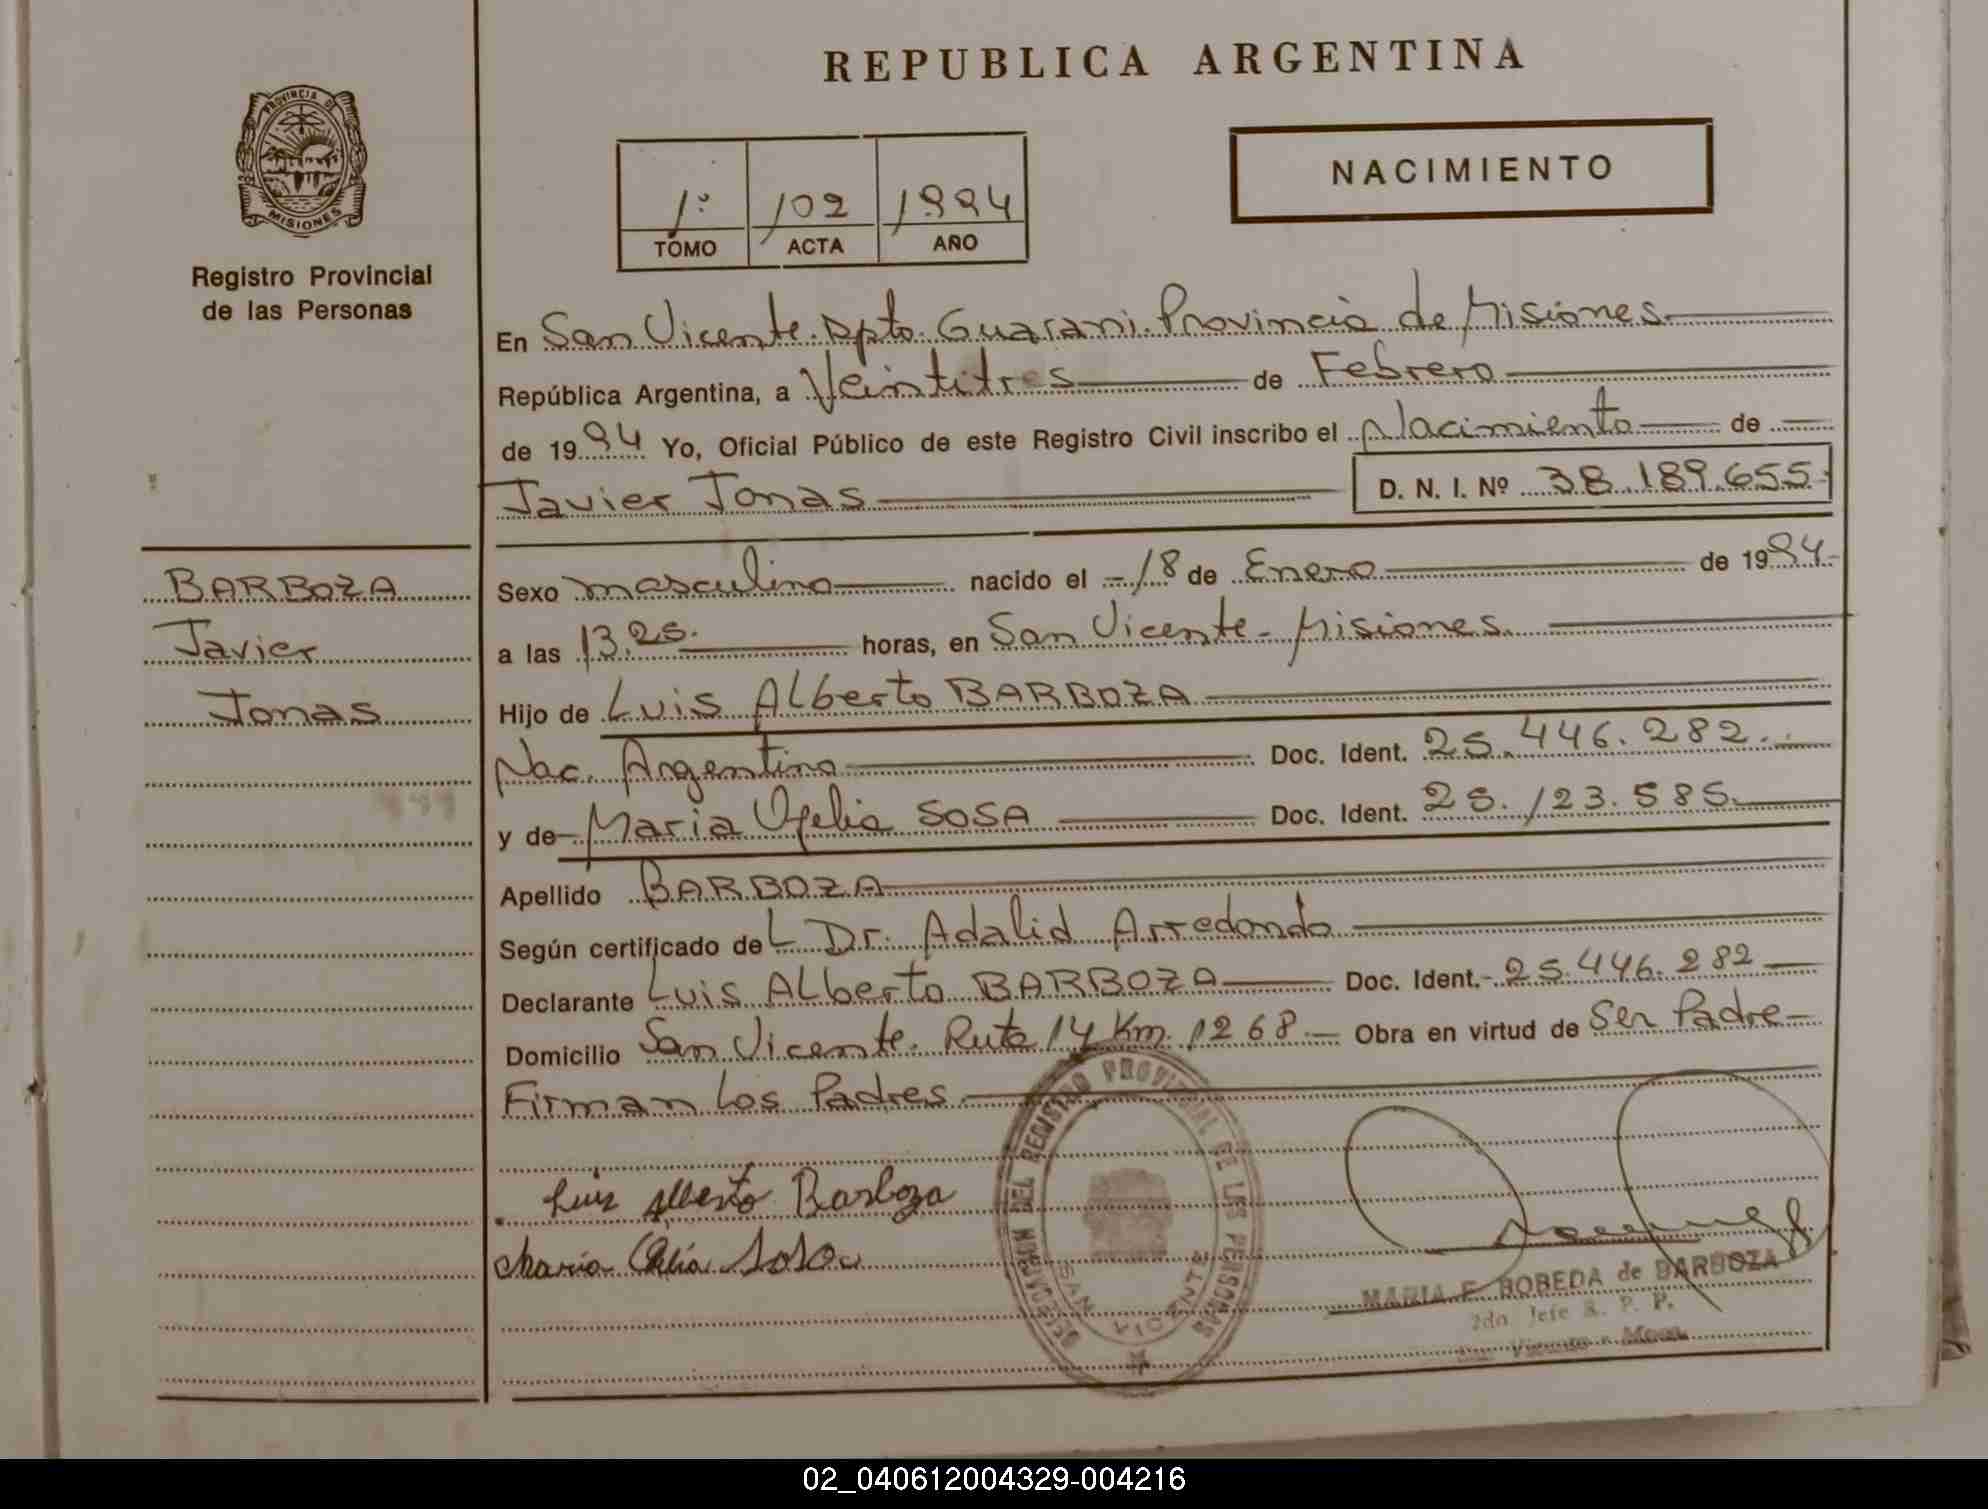 REPUBLICA ARGENTINA
PROVINCIA DE
MISIONES
Registro Provincial
de las Personas
NACIMIENTO
1º 102 1994
TOMO ACTA AÑO
En San Vicente. Dpto. Guarani. Provincia de Misiones
República Argentina, a Veintitres de Febrero
de 1994 Yo, Oficial Público de este Registro Civil inscribo el Nacimiento de
Javier Jonas D. N. I. Nº 38.189.655
BARBOZA
Javier
Jonas
Sexo masculino nacido el 18 de Enero de 1994
a las 13.25. horas, en San Vicente - Misiones.
Hijo de Luis Alberto BARBOZA
Nac. Argentino Doc. Ident. 25.446.282.
y de Maria Ofelia SOSA Doc. Ident. 25.123.585.
Apellido BARBOZA
Según certificado del Dr. Adalid Arredondo
Declarante Luis Alberto BARBOZA Doc. Ident. 25.446.282
Domicilio San Vicente. Ruta 14 Km. 1268 Obra en virtud de Ser Padre
Firman Los Padres
Luis Alberto Barboza
Maria Ofelia Sosa
DELEGACION DEL REGISTRO PROVINCIAL DE LAS PERSONAS
SAN VICENTE
MARIA E. BOBEDA de BARBOZA
2do. Jefe R. P. P.
San Vicente - Mnes.
02_040612004329-004216